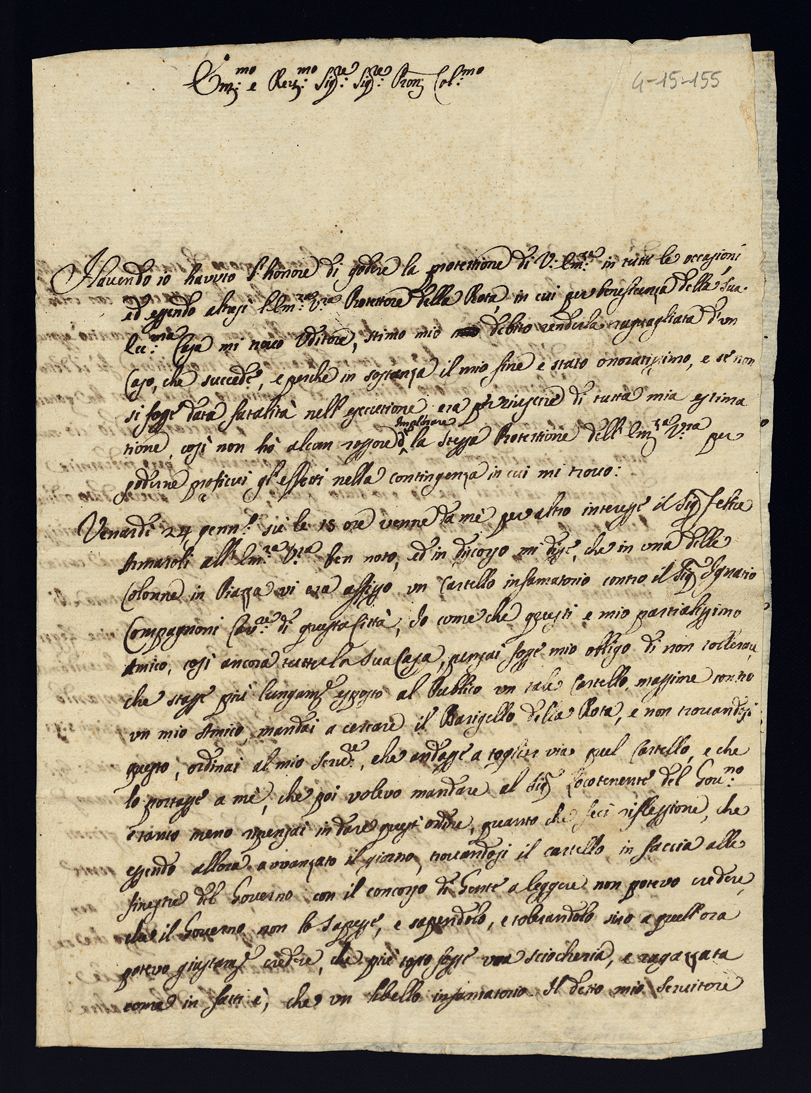 Em:mo e Rev:mo Sig:re Sig:re Pron: Col:mo
4-15-155
Havendo io havuto l'honore di godere la protettione di V: Em:za in tutte le occasioni
ed essendo altresi l'Em:za V:ra Protettore della Rota, in cui per beneficenza della sua
Ecc:ma Casa mi trovo Uditore, stimo mio debito renderla ragguagliata d'un
Caso, che succede, e perche in sostanza il mio fine e stato onoratissimo, e se non
si fosse data fatalità nell'esecutione era per riuscire di tutta mia estima
tione, così non hò alcun rossore d'implorare la stessa Protettione dell'Em:za V:ra per
goderne proficui gl'effetti nella contingenza in cui mi trovo:
Venardi 24 genn:o sù le 15 ore venne da me per altro interesse il Sig: Felice
Armaroli all'Em:za V:ra ben noto, ed in discorso mi disse, che in una delle
Colonne in Piazza vi era affisso un Cartello infamatorio contro il Sig: Ignatio
Compagnoni Cav:re di questa Città, Io come che questi e mio partialissimo
Amico, così ancora tutta la sua Casa, pensai fosse mio obligo di non tollerare,
che stasse più lungam:te esposto al Publico un tale Cartello, massime contro
un mio Amico, mandai a cercare il Barigello della Rota, e non trovandosi
questo, ordinai al mio Serv:re, che andasse a toglier via quel Cartello, e che
lo portasse a me, che poi volevo mandare al Sig: Locotenente del Gov:no
e tanto meno ripensai in dare quest'ordine, quanto che feci riflessione, che
essendo allora avvanzato il giorno, trovandosi il cartello in faccia alle
finestre del Governo con il concorso di Gente a leggere non potevo credere,
che il Governo non lo sapesse, e sapendolo, e tolerandolo sino a quell'ora
potevo giustam:te credere, che più tosto fosse una sciocheria, e ragazzata
come in fatti è, che un libello infamatorio Il detto mio servitore